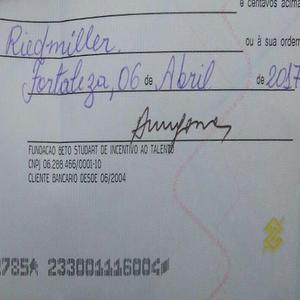 e centavos acima
Riedmiller. ou à sua ordem
Fortaleza, 06 de Abril de 2017
FUNDACAO BETO STUDART DE INCENTIVO AO TALENTO
CNPJ 06.288.466/0001-10
CLIENTE BANCARIO DESDE 06/2004